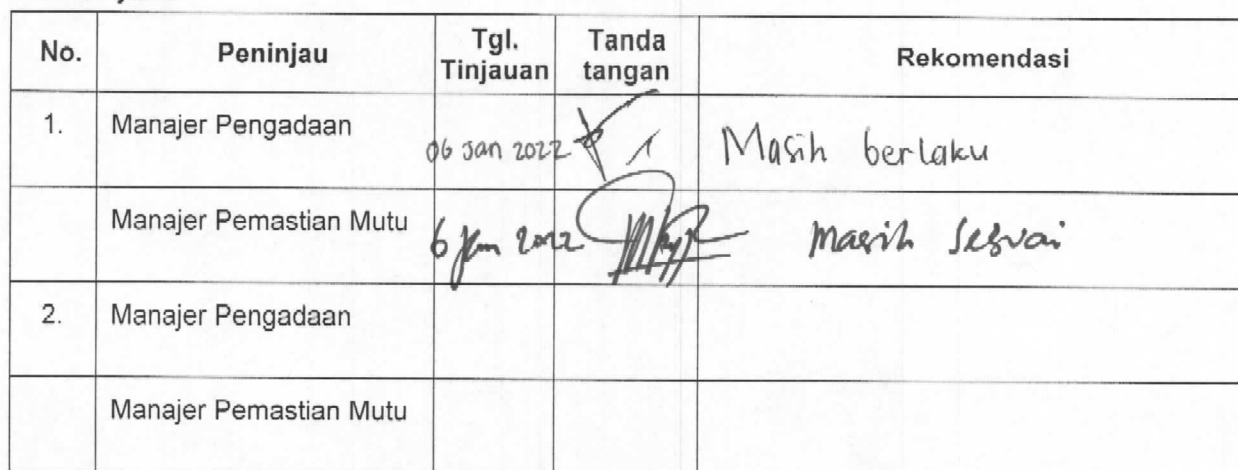 No. Peninjau Tgl. Tinjauan Tanda tangan Rekomendasi
1. Manajer Pengadaan 06 Jan 2022 Masih berlaku
Manajer Pemastian Mutu 6 Jan 2022 Masih sesuai
2. Manajer Pengadaan
Manajer Pemastian Mutu